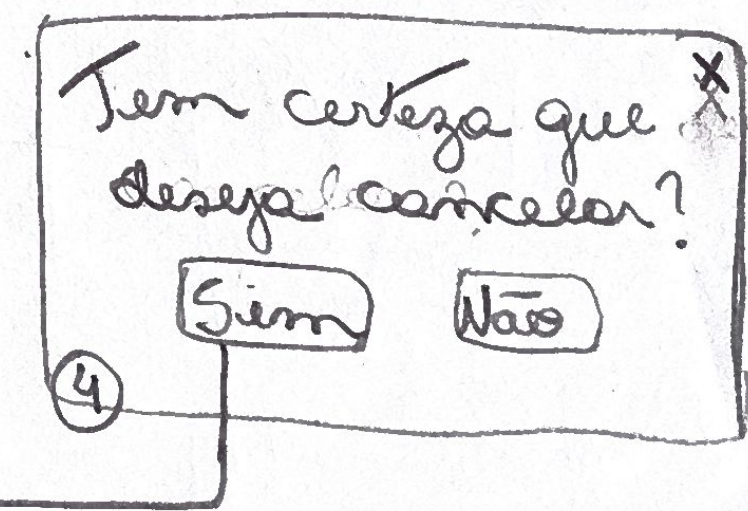 X
Tem certeza que
deseja cancelar?
Sim Não
4